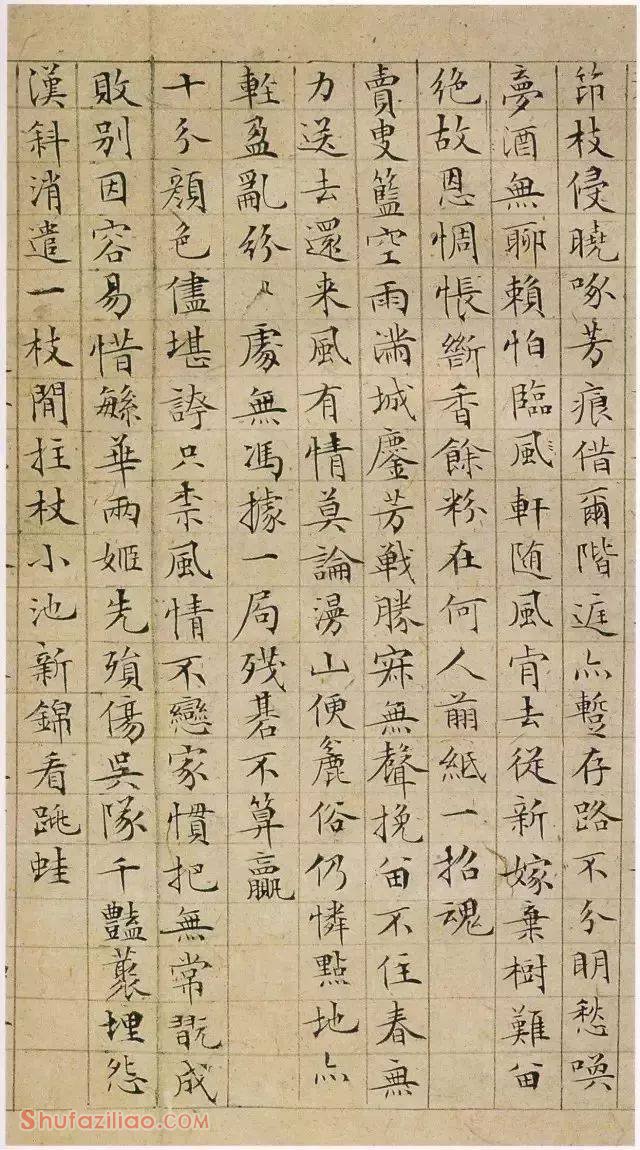 節枝侵曉啄芳痕借爾階庭亦暫存路不分明愁喚
夢酒無聊賴怕臨風軒随風肯去從新嫁棄樹難留
絶故恩惆悵斷香餘粉在何人剪紙一招魂
賣叟籃空雨滿城鏖芳戰勝寂無聲挽留不住春無
力送去還来風有情莫論漫山便麄俗仍憐點地亦
輕盈亂紛〻處無馮據一局殘碁不算贏
十分顔色儘堪誇只柰風情不戀家慣把無常翫成
敗别因容易惜緐華兩姬先殞傷吳隊千豔叢埋怨
漢斜消遣一枝閒拄杖小池新錦看跳蛙
Shufaziliao.com